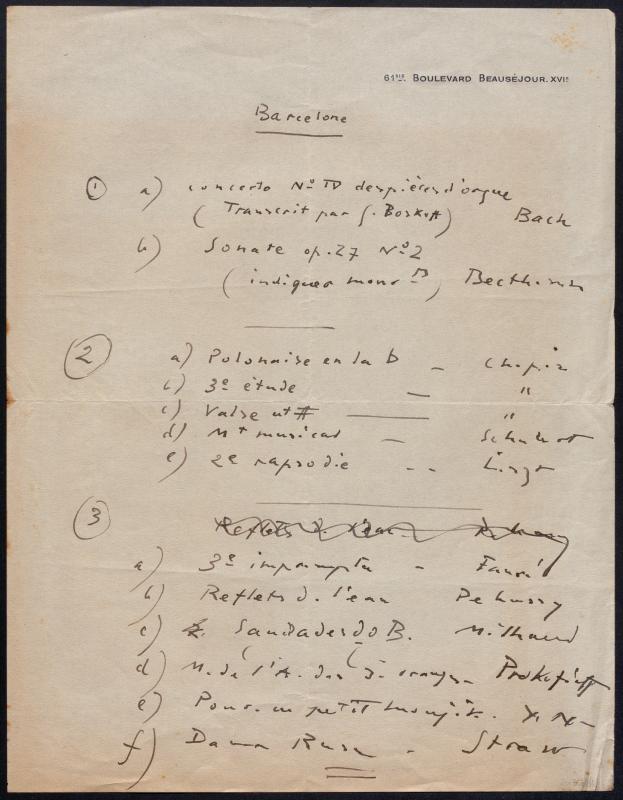 61BIS. BOULEVARD BEAUSÉJOUR. XVIE
Barcelone
① a) concerto No IV des pièces d'orgue
(Transcrit par G. Boskoff) Bach
b) Sonate op. 27 No 2
(indiquer mono) Beethoven
② a) Polonaise en la b – Chopin
b) 3e étude – "
c) Valse ut # — "
d) Mt musical – Schubert
e) 2e rapsodie – – Liszt
③ Reflets d. l'eau Debussy
a) 3e impromptu – Fauré
b) Reflets d. l'eau Debussy
c) Saudades do B. Milhaud
d) M. de l'A. des 3 oranges Prokofieff
e) Pour un petit moujik. X. X–
f) Danse Russe – Straw